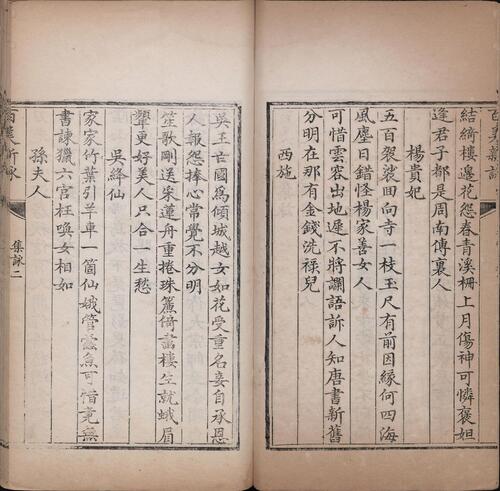 結綺樓邊花怨春青溪柵上月傷神可憐褒妲
逢君子都是周南傳裏人
楊貴妃
五百袈裟回向寺一枝玉尺有前因緣何四海
風塵日錯怪楊家善女人
可惜雲容出地遲不將讕語訴人知唐書新舊
分明在那有金錢洗祿兒
西施
吳王亡國爲傾城越女如花受重名妾自承恩
人報怨捧心常覺不分明
笙歌剛送采蓮舟重捲珠簾倚畫樓生就蛾眉
顰更好美人只合一生愁
吳絳仙
家家竹葉引羊車一箇仙娥管
可惜竟無
書諫獵六宮枉喚女相如
孫夫人
集詠二